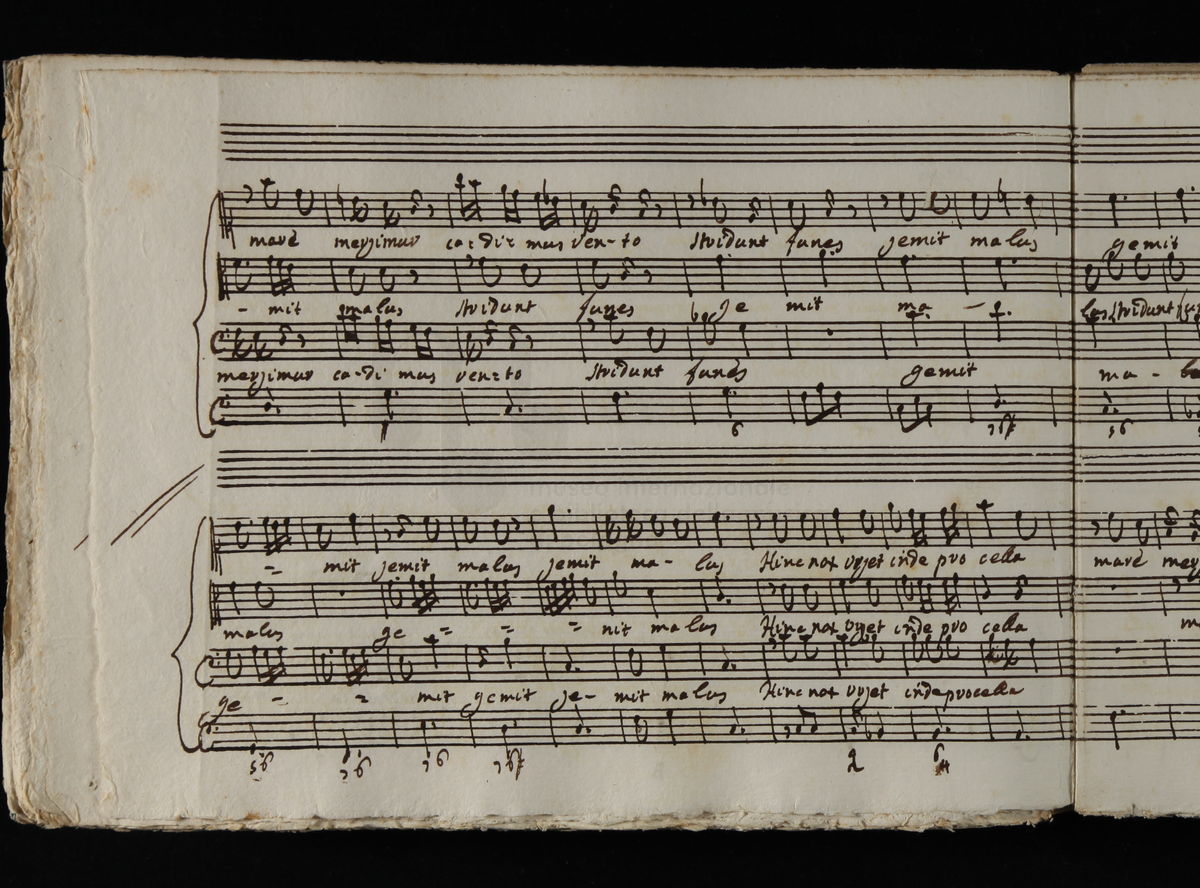 marè mergimur ca = di = mus ven - to stridunt funes gemit malus gemit
- mit malus stridunt funes ge mit ma - lus stridunt
mergimur ca - di mus ven = to stridunt funes gemit ma -
6 56
= mit gemit malus gemit ma - lus Hinc nox urget inde pro cella marè
malus ge = = = mit malus Hinc nox urget inde pro cella
ge = = mit gemit ge - mit malus Hinc nox urget inde procella
56 76 76 2 6
museo internazionale